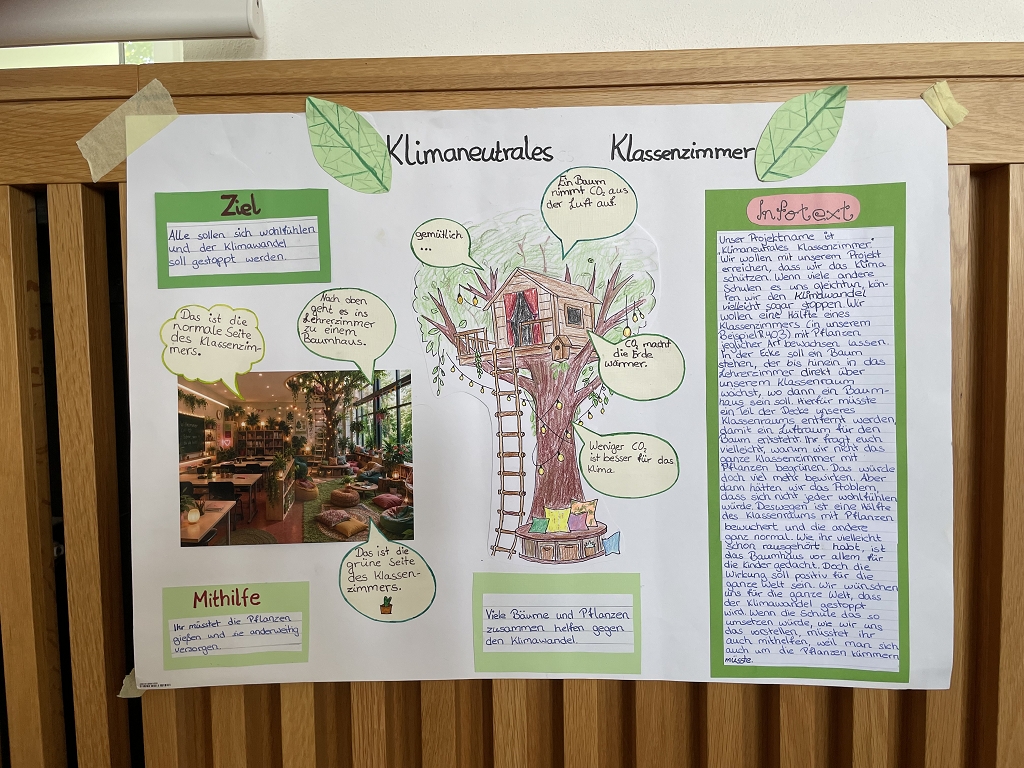 Klimaneutrales Klassenzimmer
Ziel
Alle sollen sich wohlfühlen
und der Klimawandel
soll gestoppt werden.
Das ist die
normale Seite
des Klassenzim-
mers.
Nach oben
geht es ins
Lehrerzimmer
zu einem
Baumhaus.
Das ist die
grüne Seite
des Klassen-
zimmers.
Mithilfe
Ihr müsstet die Pflanzen
gießen und sie anderweitig
versorgen.
gemütlich
...
Ein Baum
nimmt CO₂ aus
der Luft auf.
CO₂ macht
die Erde
wärmer.
Weniger CO₂
ist besser für das
Klima.
Viele Bäume und Pflanzen
zusammen helfen gegen
den Klimawandel.
Infotext
Unser Projektname ist
„Klimaneutrales Klassenzimmer".
Wir wollen mit unserem Projekt
erreichen, dass wir das Klima
schützen. Wenn viele andere
Schulen es uns gleichtun, kön-
ten wir den Klimawandel
vielleicht sogar stoppen. Wir
wollen eine Hälfte eines
Klassenzimmers (in unserem
Beispiel R403) mit Pflanzen
jeglicher Art bewachsen lassen.
In der Ecke soll ein Baum
stehen, der bis hinein in das
Lehrerzimmer direkt über
unserem Klassenraum
wächst, wo dann ein Baum-
haus sein soll. Hierfür müsste
ein Teil der Decke unseres
Klassenraums entfernt werden,
damit ein Luftraum für den
Baum entsteht. Ihr fragt euch
vielleicht, warum wir nicht das
ganze Klassenzimmer mit
Pflanzen begrünen. Das würde
doch viel mehr bewirken. Aber
dann hätten wir das Problem,
dass sich nicht jeder wohlfühlen
würde. Deswegen ist eine Hälfte
des Klassenraums mit Pflanzen
bewuchert und die andere
ganz normal. Wie ihr vielleicht
schon rausgehört habt, ist
das Baumhaus vor allem für
die Kinder gedacht. Doch die
Wirkung soll positiv für die
ganze Welt sein. Wir wünschen
uns für die ganze Welt, dass
der Klimawandel gestoppt
wird. Wenn die Schule das so
umsetzen würde, wie wir uns
das vorstellen, müsstet ihr
auch mithelfen, weil man sich
auch um die Pflanzen kümmern
müsste.